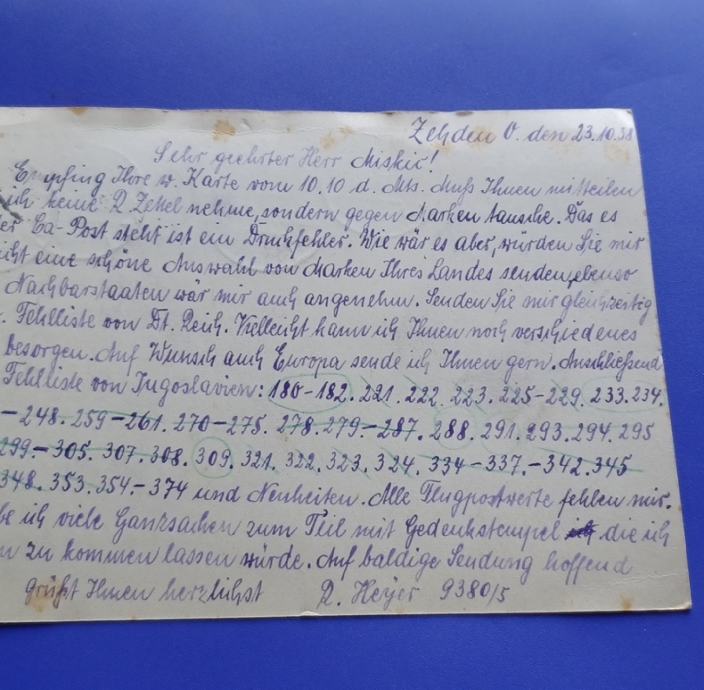 Zehden O. den 23.10.38
Sehr geehrter Herr Miskić!
Empfing Ihre w. Karte vom 10.10 d. Mts. Muß Ihnen mitteilen
ich keine Zettel nehme, sondern gegen Marken tausche. Das es
er Ea-Post steht ist ein Druckfehler. Wie wär es aber, würden Sie mir
icht eine schöne Auswahl von Marken Ihres Landes senden, ebenso
Nachbarstaaten wär mir auch angenehm. Senden Sie mir gleichzeitig
. Fehlliste von Dt. Reich. Vielleicht kann ich Ihnen noch verschiedenes
besorgen. Auf Wunsch auch Europa sende ich Ihnen gern. Anschließend
Fehlliste von Jugoslavien: 180-182. 221. 222. 223. 225-229. 233. 234.
-248. 259-261. 270-275. 278. 279.-287. 288. 291. 293. 294. 295
299-305. 307. 308. 309. 321. 322. 323. 324. 334-337.-342. 345
348. 353. 354.-374 und Neuheiten. Alle Flugpostwerte fehlen mir.
be ich viele Ganzsachen zum Teil mit Gedenkstempel die ich
n zu kommen lassen würde. Auf baldige Sendung hoffend
grüßt Ihnen herzlichst R. Heyer 9380/5